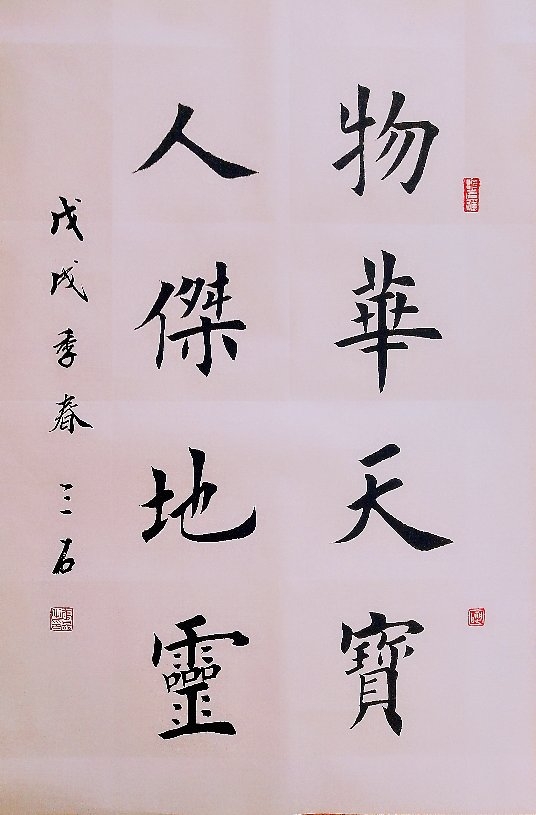 物華天寶
人傑地靈
戊戌季春 三石